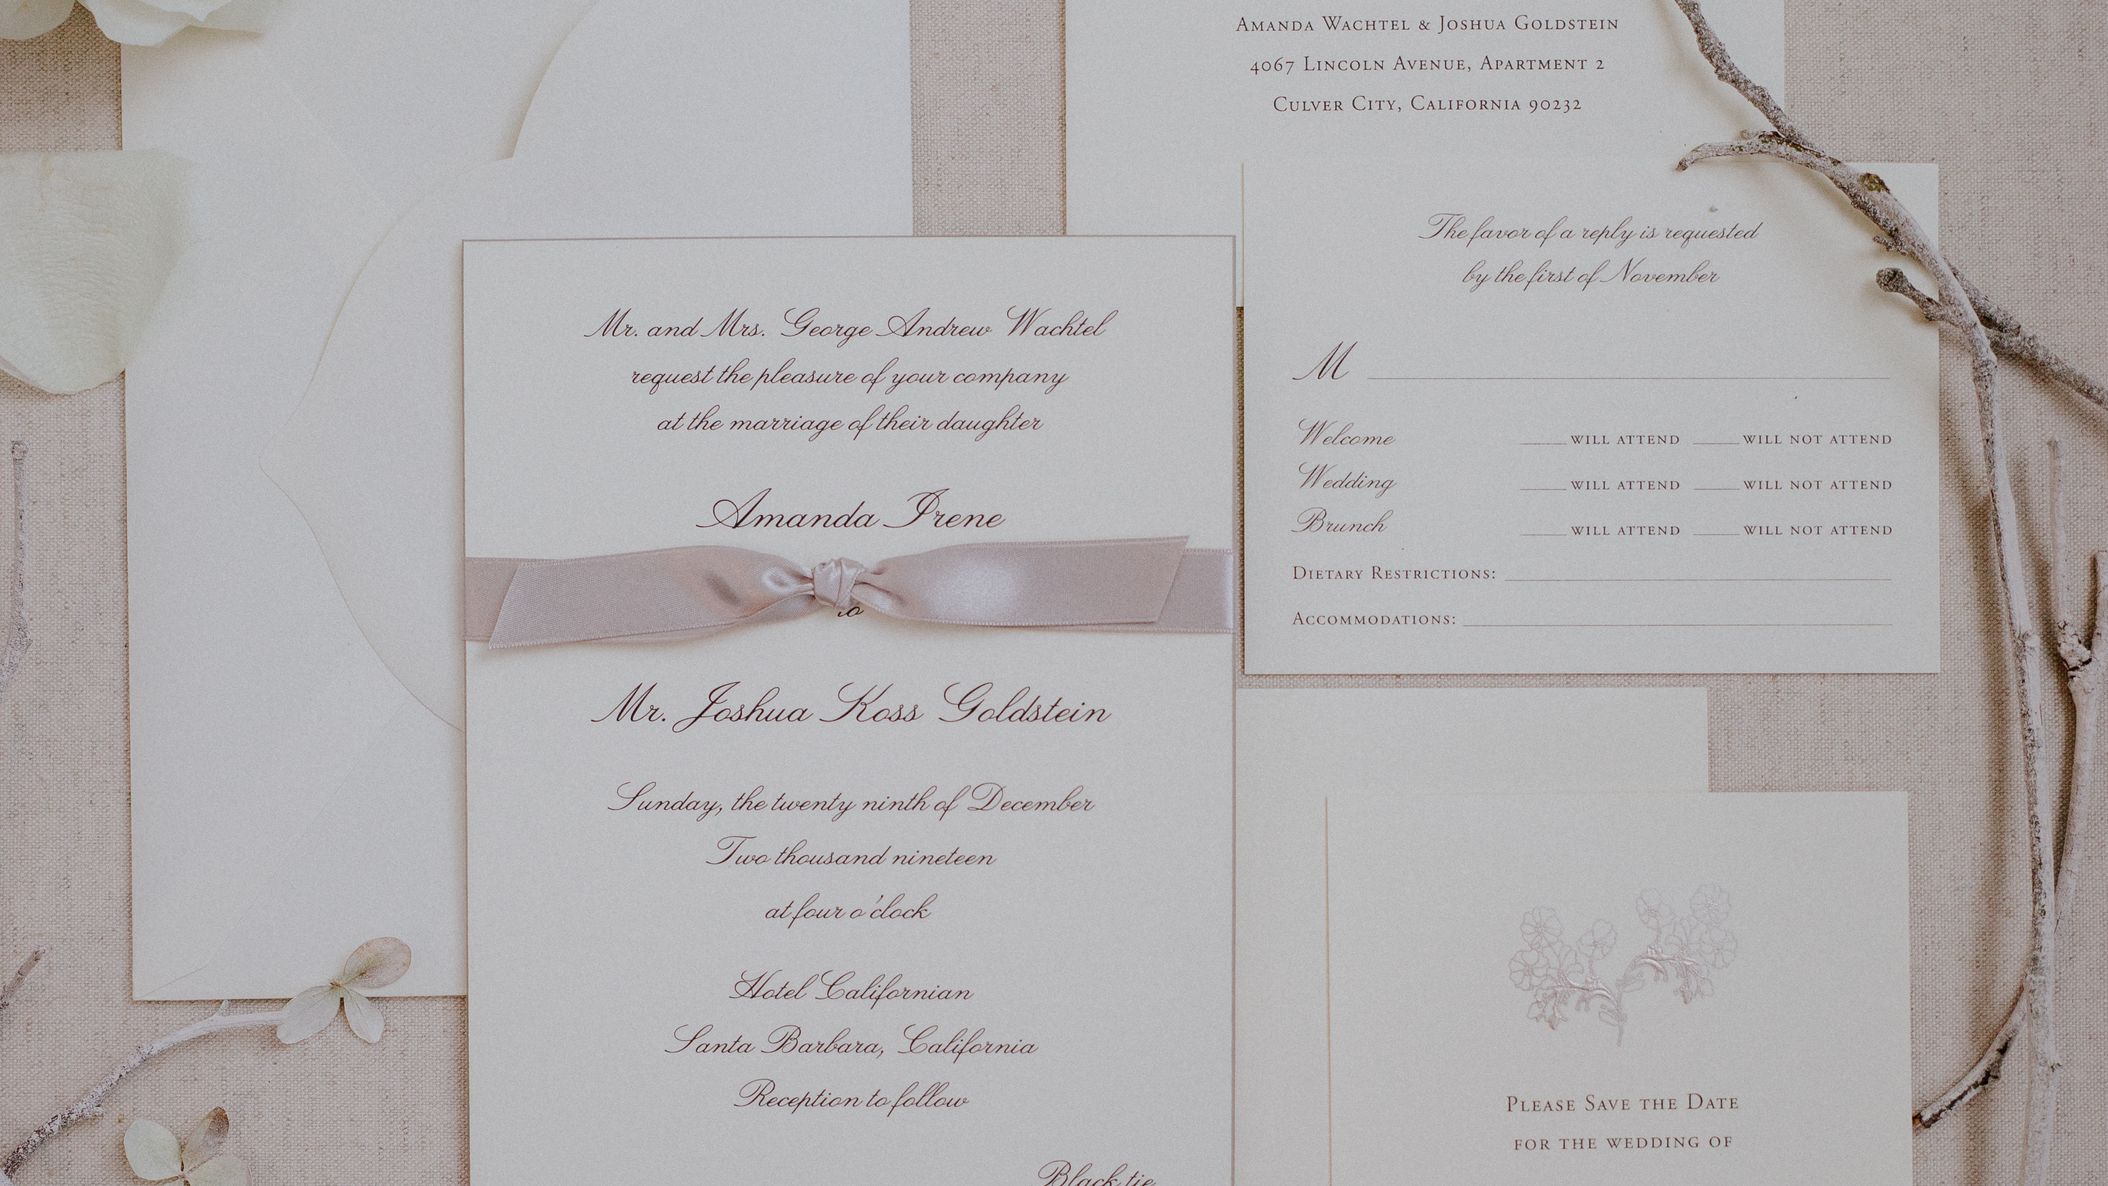 Mr. and Mrs. George Andrew Wachtel
request the pleasure of your company
at the marriage of their daughter
Amanda Irene
to
Mr. Joshua Koss Goldstein
Sunday, the twenty ninth of December
Two thousand nineteen
at four o'clock
Hotel Californian
Santa Barbara, California
Reception to follow
Black tie
Amanda Wachtel & Joshua Goldstein
4067 Lincoln Avenue, Apartment 2
Culver City, California 90232
The favor of a reply is requested
by the first of November
M
Welcome WILL ATTEND WILL NOT ATTEND
Wedding WILL ATTEND WILL NOT ATTEND
Brunch WILL ATTEND WILL NOT ATTEND
Dietary Restrictions:
Accommodations:
Please Save the Date
for the wedding of